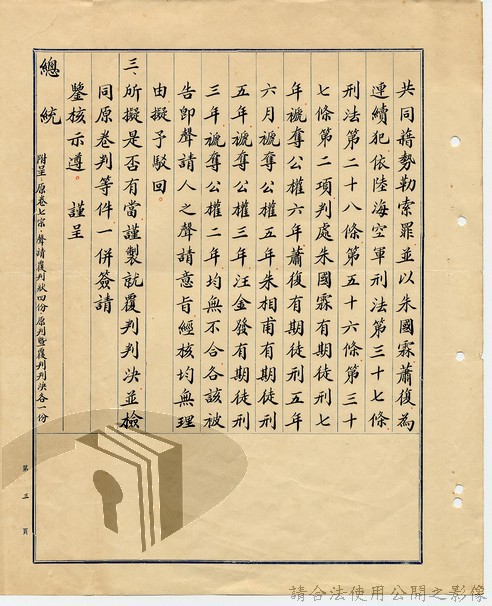 共同藉勢勒索罪並以朱國霖蕭復為
連續犯依陸海空軍刑法第三十七條
刑法第二十八條第五十六條第三十
七條第二項判處朱國霖有期徒刑七
年褫奪公權六年蕭復有期徒刑五年
六月褫奪公權五年朱相甫有期徒刑
五年褫奪公權三年汪金發有期徒刑
三年褫奪公權二年均無不合各該被
告卽聲請人之聲請意旨經核均無理
由擬予駁回。
三、所擬是否有當謹製就覆判判決並檢
同原卷判等件一併簽請
鑒核示遵。謹呈
總統
附呈原卷七宗聲請覆判狀四份原判暨覆判判決各一份
第三頁
請合法使用公開之影像